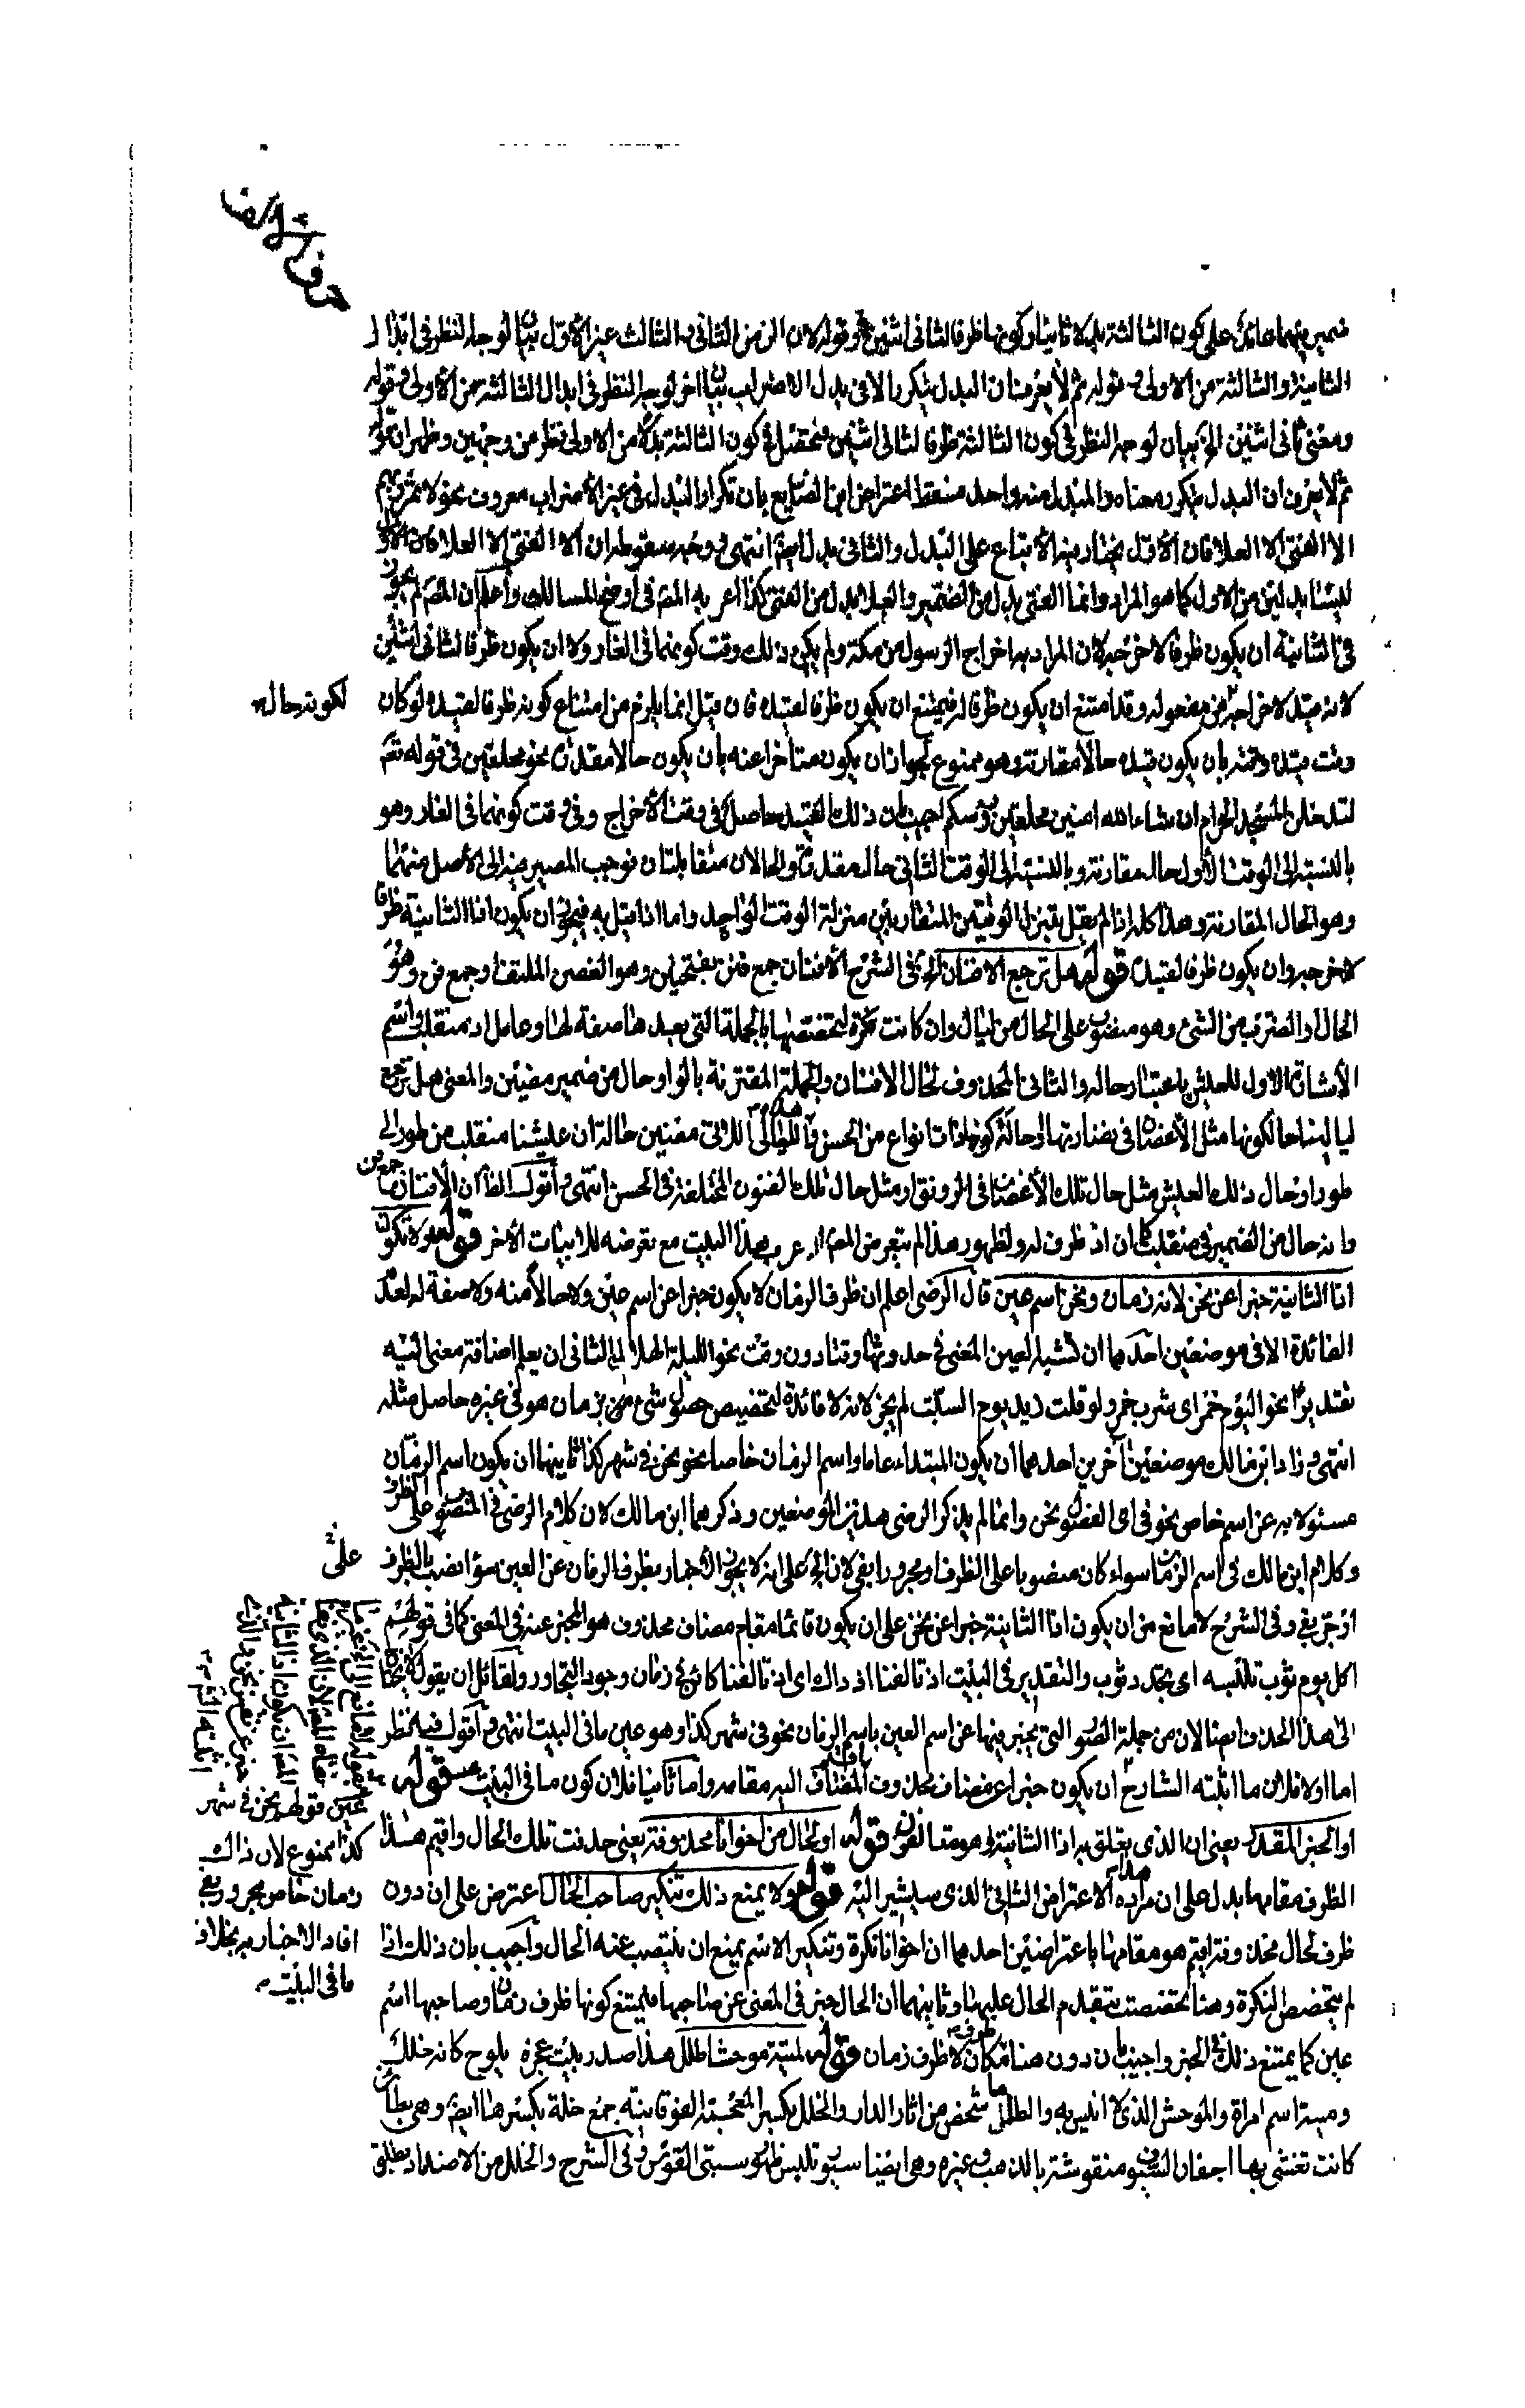 ضمير منهما عائد على كون الثالثة بدلا ثانيا وكونها ظرفا لثانى اثنين وقوله لان الزمن الثانى والثالث غير الأول بيان لوجه النظر فى ابدال
الثانية والثالثة من الاولى وقوله ثم لا يعرف ان البدل يتكرر الا فى بدل الاضراب بيان اخر لوجه النظر فى ابدال الثالثة من الاولى وقوله
ومعنى ثانى اثنين الخ بيان لوجه النظر فى كون الثالثة ظرفا لثانى اثنين فتحصل فى كون الثالثة بدلا من الاولى نظر من وجهين وظهر ان قوله
ثم لا يعرف ان البدل يتكرر معناه والمبدل منه واحد فسقط اعتراض ابن الصايع بان تكرار البدل فى غير الأضراب معروف نحو لا تمرر بهم
الا الفتى الا العلا فان الأول يختار فيه الأتباع على البدل والثانى بدل ايضا انتهى ووجه سقوطه ان الا الفتى الا العلا
ليسا بدلين من الاول كما هو المراد وانما الفتى بدل من الضمير والعلا بدل من الفتى كذا اعربه المص فى اوضح المسالك واعلم ان المص لم يجوز
فى الثانية ان يكون ظرفا لاخرجه لان المراد به اخراج الرسول من مكة ولم يكن ذلك وقت كونهما فى الغار ولا ان يكون ظرفا لثانى اثنين
لانه قيد لاخراجه من مفعوله وقد امتنع ان يكون ظرفا له فيمتنع ان يكون ظرفا لقيده فان قيل انما يلزم من امتناع كونه ظرفا لقيده لو كان
لكونه حاله
وقت قيده وقته بان يكون قيده حالا مقارنة وهو ممنوع لجواز ان يكون متأخرا عنه بان يكون حالا مقدرة نحو محلقين فى قوله تعم
لتدخلن المسجد الحرام ان شاء الله امنين محلقين رؤسكم اجيب بان ذلك القيد حاصل فى وقت الأخراج وفى وقت كونهما فى الغار وهو
بالنسبة الى الوقت الأول حال مقارنة وبالنسبة الى الوقت الثانى حال مقدرة والحالان متقابلتان فوجب المصير فيه الى الأصل منهما
وهو الحال المقارنة وهذا كله اذا لم يقل بتنزل الوقتين المتقاربين منزلة الوقت الواحد واما اذا قيل به فيجوز ان يكون اذ الثانية ظرفا
لاخرجه وان يكون ظرفا لقيده قوله هل ترجع الافنان الخ فى الشرح الأفنان جمع فنن بفتحتين وهو الغصن الملتف او جمع فن وهو
الحال او الضرب من الشئ وهو منصوب على الحال من ليال وان كانت نكرة لتخصصها بالجملة التى بعدها صفة لها وعامل اذ منقلب واسم
الأشارة الاول للعيش باعتبار حاله والثانى المحذوف لحال الافنان والجملة المقترنة بالواو حال من ضمير مضين والمعنى هل ترجع
ليالينا حالكونها مثل الأغصان فى نضارتها او حالة كونها ذات انواع من الحسن هذه الليالى اللاتى مضين حالة ان عيشنا منقلب من طور الى
طور او حال ذلك العيش مثل حال تلك الأغصان فى الرونق او مثل حال تلك الفنون المختلفة فى الحسن انتهى واقول الظا ان الأفنان جمع فن
وانه حال من الضمير فى منقلب كما ان اذ ظرف له ولظهور هذا لم يتعرض المص لاعراب هذا البيت مع تعرضه للابيات الأخر قوله ولا تكون
اذ الثانية خبرا عن نحن لانه زمان ونحن اسم عين قال الرضى اعلم ان ظرف الزمان لا يكون خبرا عن اسم عين ولا حالا منه ولا صفة له لعدم
الفائدة الا فى موضعين احدهما ان تشبه العين المعنى فى حدوثها وقتا دون وقت نحو الليلة الهلال الثانى ان يعلم اضافة معنى اليه
تقديرا نحو اليوم خمر اى شرب خمر ولو قلت زيد يوم السبت لم يجز لانه لا فائدة لتخصيص حصول شئ بزمان هو فى غيره حاصل مثله
انتهى وزاد ابن مالك موضعين آخرين احدهما ان يكون المبتداء عاما واسم الزمان خاصا نحو نحن فى شهر كذا ثانيهما ان يكون اسم الزمان
مسئولا به عن اسم خاص نحو فى اى الفصول نحن وانما لم يذكر الرضى هذين الموضعين وذكرهما ابن مالك لان كلام الرضى فى المنصوب على الظرف
وكلام ابن مالك فى اسم الزمان سواء كان منصوبا على الظرف او مجرورا بفى لان الخ على انه لا يجوز الأخبار بظرف الزمان عن العين سواء نصب بالظرف
على
او جر بفى وفى الشرح لا مانع من ان يكون اذ الثانية خبرا عن نحن على ان يكون قائما مقام مضاف محذوف هو المخبر عنه فى المعنى كما فى قولهم
اكل يوم ثوب تلبسه اى تجدد ثوب والتقدير فى البيت اذ تالفنا اذ ذاك اى اذ تالفنا كائن فى زمان وجود التجاور ولقائل ان يقول لا يحتاج
الى هذا الحذف ايضا لان من جملة الصور التى يخبر فيها عن اسم العين باسم الزمان نحو فى شهر كذا وهو عين ما فى البيت انتهى واقول فيه نظر
اما اولا فلان ما اثبته الشارح ان يكون خبرا عن مضاف محذوف اقيم المضاف اليه مقامه واما ثانيا فلان كون ما فى البيت قوله
عين قولهم نحن فى شهر
كذا ممنوع لان ذاك
زمان خاص مجرور بفى
افاد الاخبار به بخلاف
ما فى البيت
او الخبر المقدر يعنى ان الذى يتعلق به اذ الثانية قوله او الحال من اخوانا محذوفة يعنى حذفت تلك الحال واقيم هذا
الظرف مقامها يدل على ان مراده هذا الاعتراض الثانى الذى سيشير اليه قوله ولا يمنع ذلك تنكير صاحب الحال اعترض على ان دون
ظرف لحال محذوفة اقيم هو مقامها باعتراضين احدهما ان اخوانا نكرة وتنكير الاسم يمنع ان ينتصب عنه الحال واجيب بان ذلك اذا
لم يتخصص النكرة وهنا تخصصت بتقدم الحال عليها وثانيهما ان الحال خبر فى المعنى عن صاحبها فيمتنع كونها ظرف زمان وصاحبها اسم
عين كما يمتنع ذلك فى الخبر واجيب بان دون هنا ظرف مكان لا ظرف زمان قوله لمية موحشا طلل هذا صدر بيت عجزه يلوح كانه خلل
ومية اسم امراة والموحش الذى لا انيس به والطلل ما شخص من اثار الدار والخلل بكسر المعجمة الفوقانية جمع خلة بكسرها ايضا وهى بطائن
كانت تغشى بها اجفان السيوف منقوشة بالذهب وغيره وهى ايضا سيور تلبس ظهور سيتى القوس وفى الشرح والخلل من الاضداد يطلق